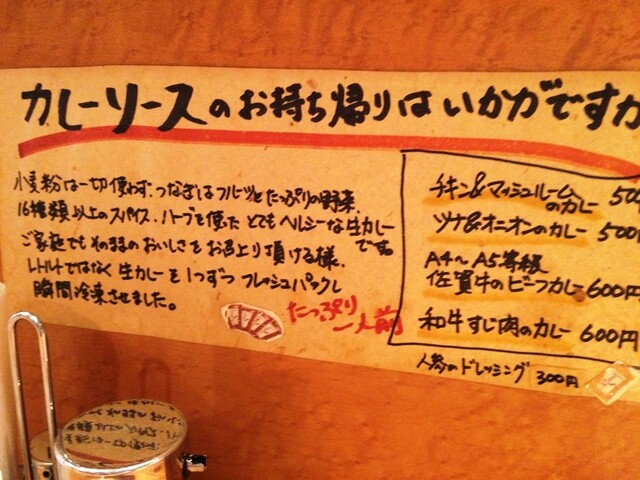 カレーソースのお持ち帰りはいかがですか
小麦粉は一切使わず、つなぎはフルーツとたっぷりの野菜、
16種類以上のスパイス、ハーブを使った とてもヘルシーな生カレーです。
ご家庭でもそのままのおいしさをお召上り頂ける様、
レトルトではなく生カレーを1つずつ フレッシュパックし
瞬間冷凍させました。
たっぷり
一人前
チキン&マッシュルームのカレー 500
ツナ&オニオンのカレー 500円
A4〜A5等級
佐賀牛のビーフカレー 600円
和牛すじ肉のカレー 600円
人参のドレッシング 300円